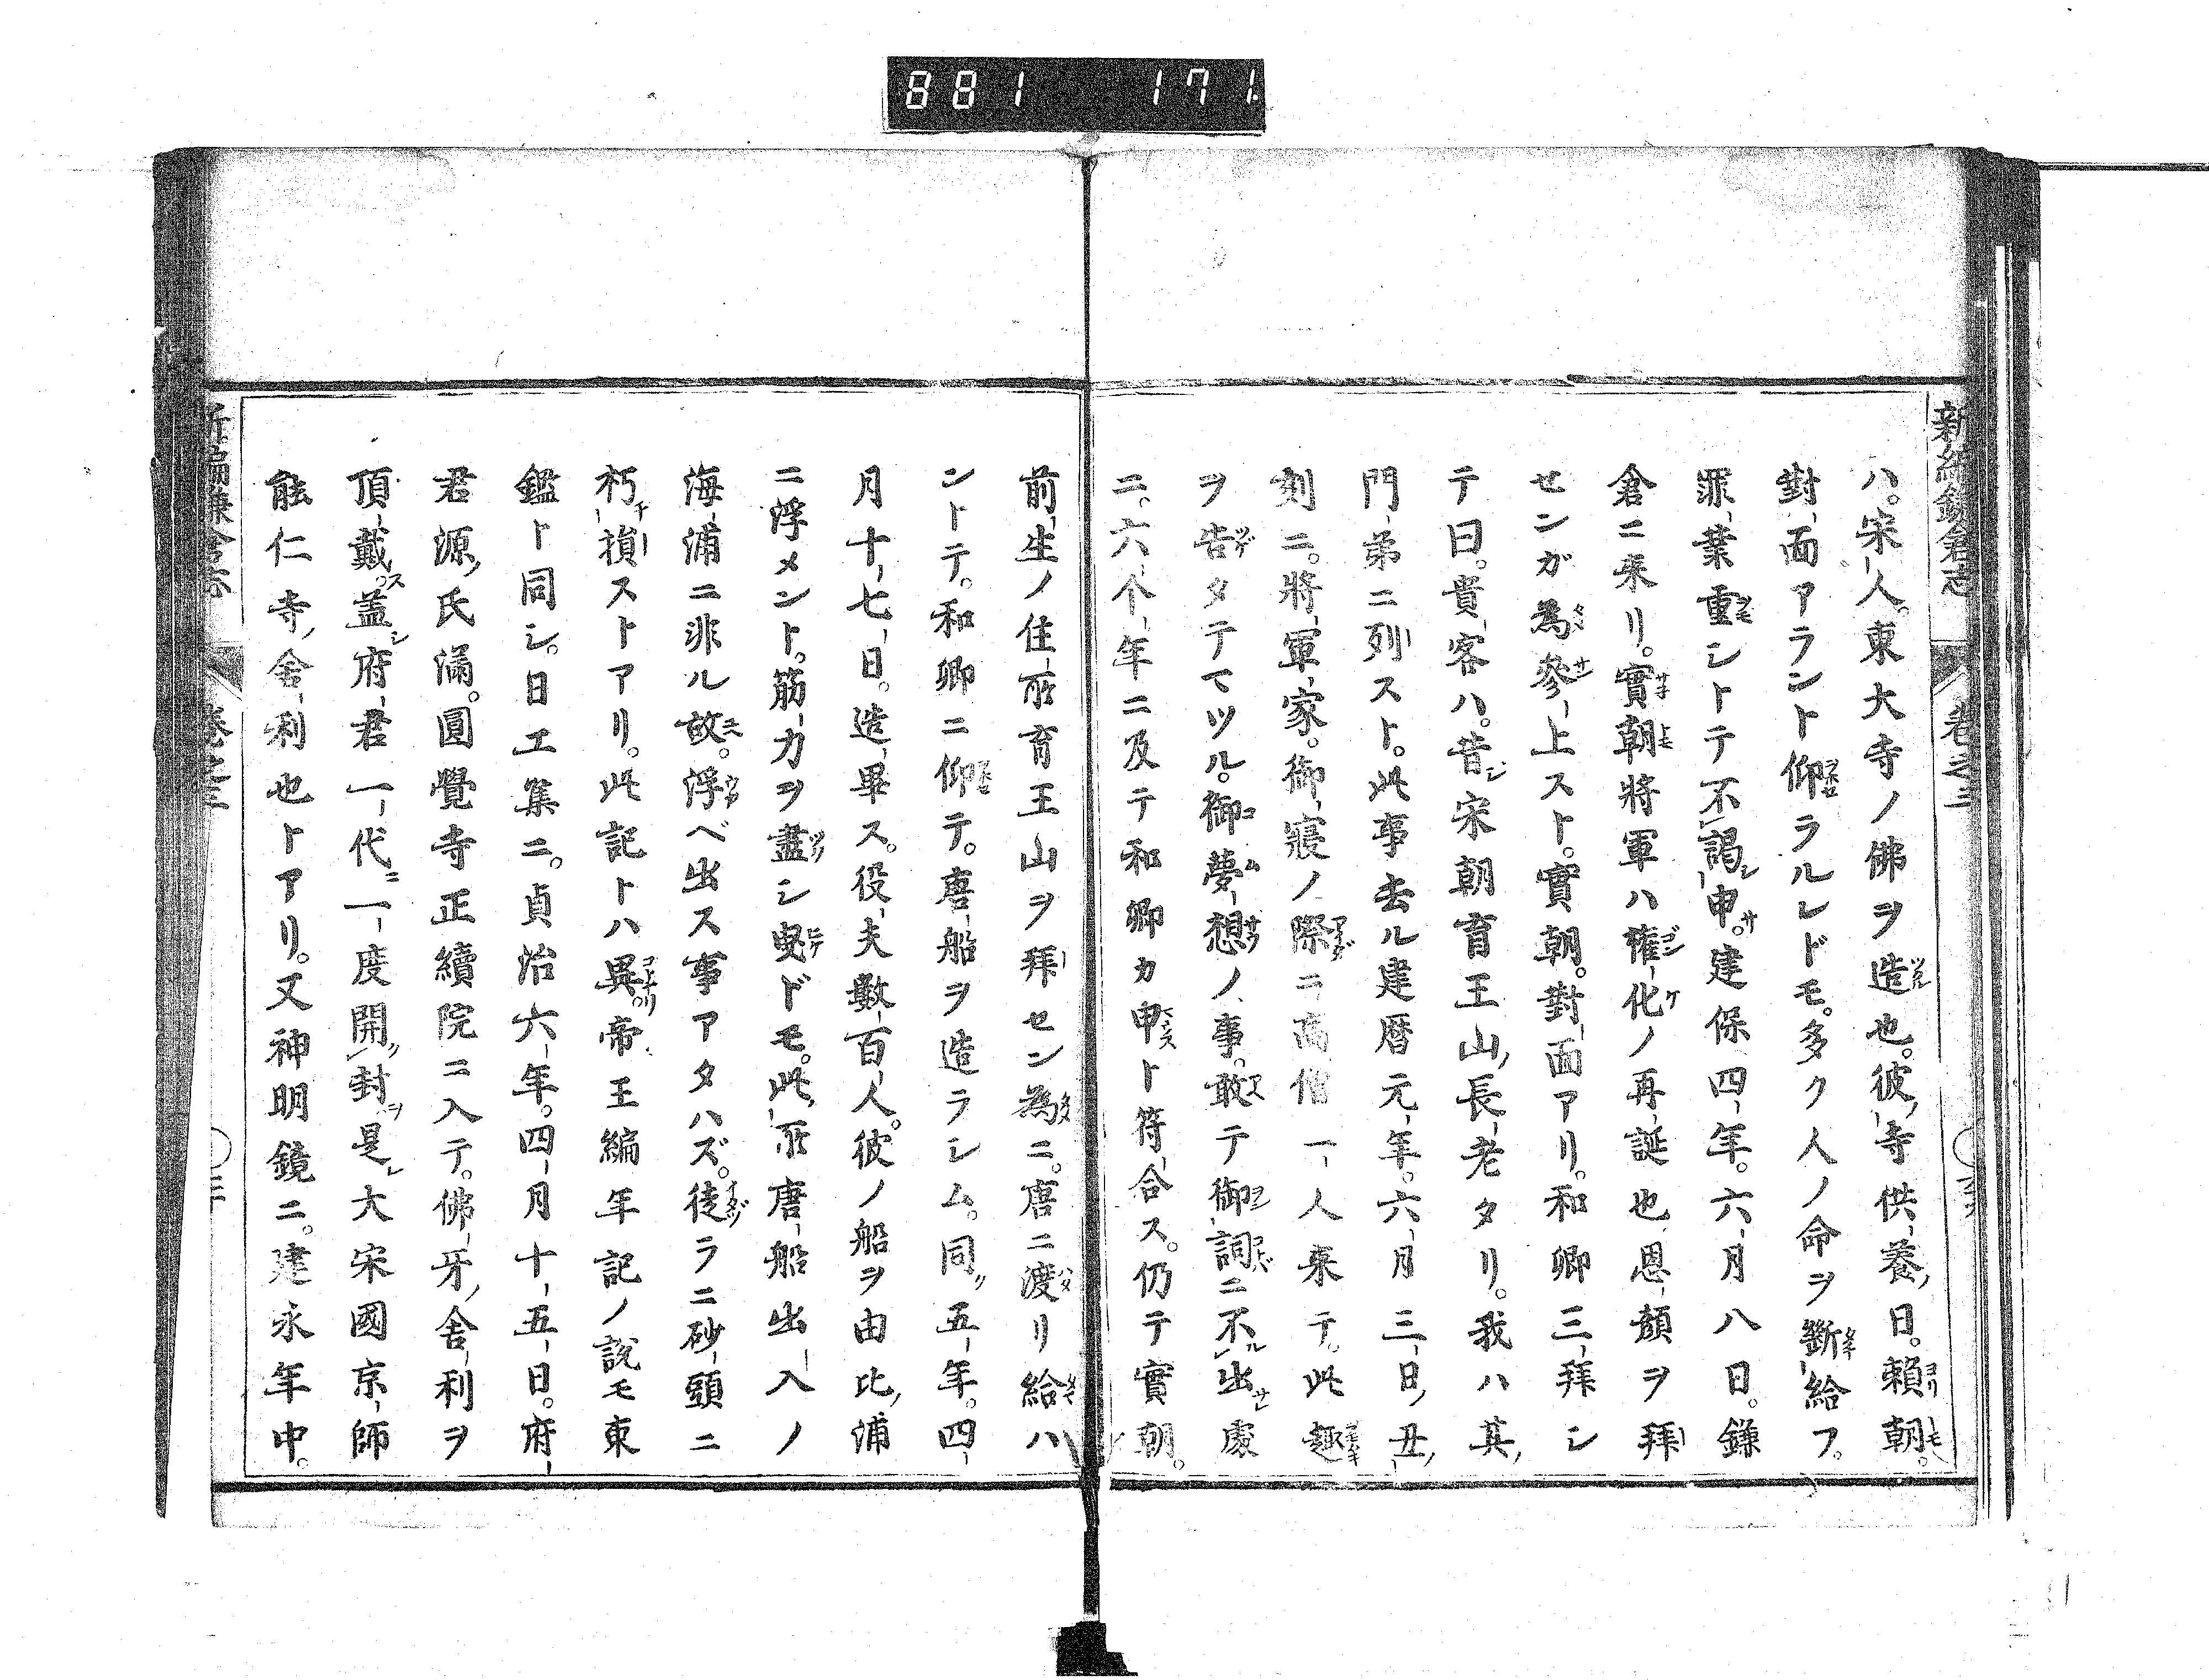 881 171
新編鎌倉志 卷之三
ハ。宋人。東大寺ノ佛ヲ造也。彼寺供養日。賴朝。
對面アラント仰ラルレドモ。多ク人ノ命ヲ斷給フ。
罪業重シトテ不謁申。建保四年。六月八日。鎌
倉ニ來リ。實朝將軍ハ權化ノ再誕也恩顏ヲ拜
センガ為參上スト。實朝。對面アリ。和卿三拜シ
テ曰。貴客ハ。昔宋朝育王山長老タリ。我ハ其
門弟ニ列スト。此事去ル建曆元年。六月三日丑
刻ニ。將軍家。御寢ノ際ニ高僧一人來テ。此趣
ヲ告タテマツル。御夢想ノ事。敢テ御詞ニ不出處
ニ。六个年ニ及テ和卿カ申ト符合ス。仍テ實朝。
前生ノ住所育王山ヲ拜セン為ニ。唐ニ渡リ給ハ
ントテ。和卿ニ仰テ。唐船ヲ造ラシム。同五年。四
月十七日。造畢ス。役夫數百人。彼ノ船ヲ由比浦
ニ浮メント。筋力ヲ盡シ曳ドモ。此所唐船出入ノ
海浦ニ非ル故。浮ベ出ス事アタハズ。徒ラニ砂頭ニ
朽損ストアリ。此記トハ異。帝王編年記ノ說モ東
鑑ト同シ。日工集ニ。貞治六年。四月十五日。府
君源氏滿。圓覺寺正續院ニ入テ。佛牙舍利ヲ
頂戴。蓋府君一代一度開封是大宋國京師
能仁寺舍利也トアリ。又神明鏡ニ。建永年中。
新編鎌倉志 卷之三